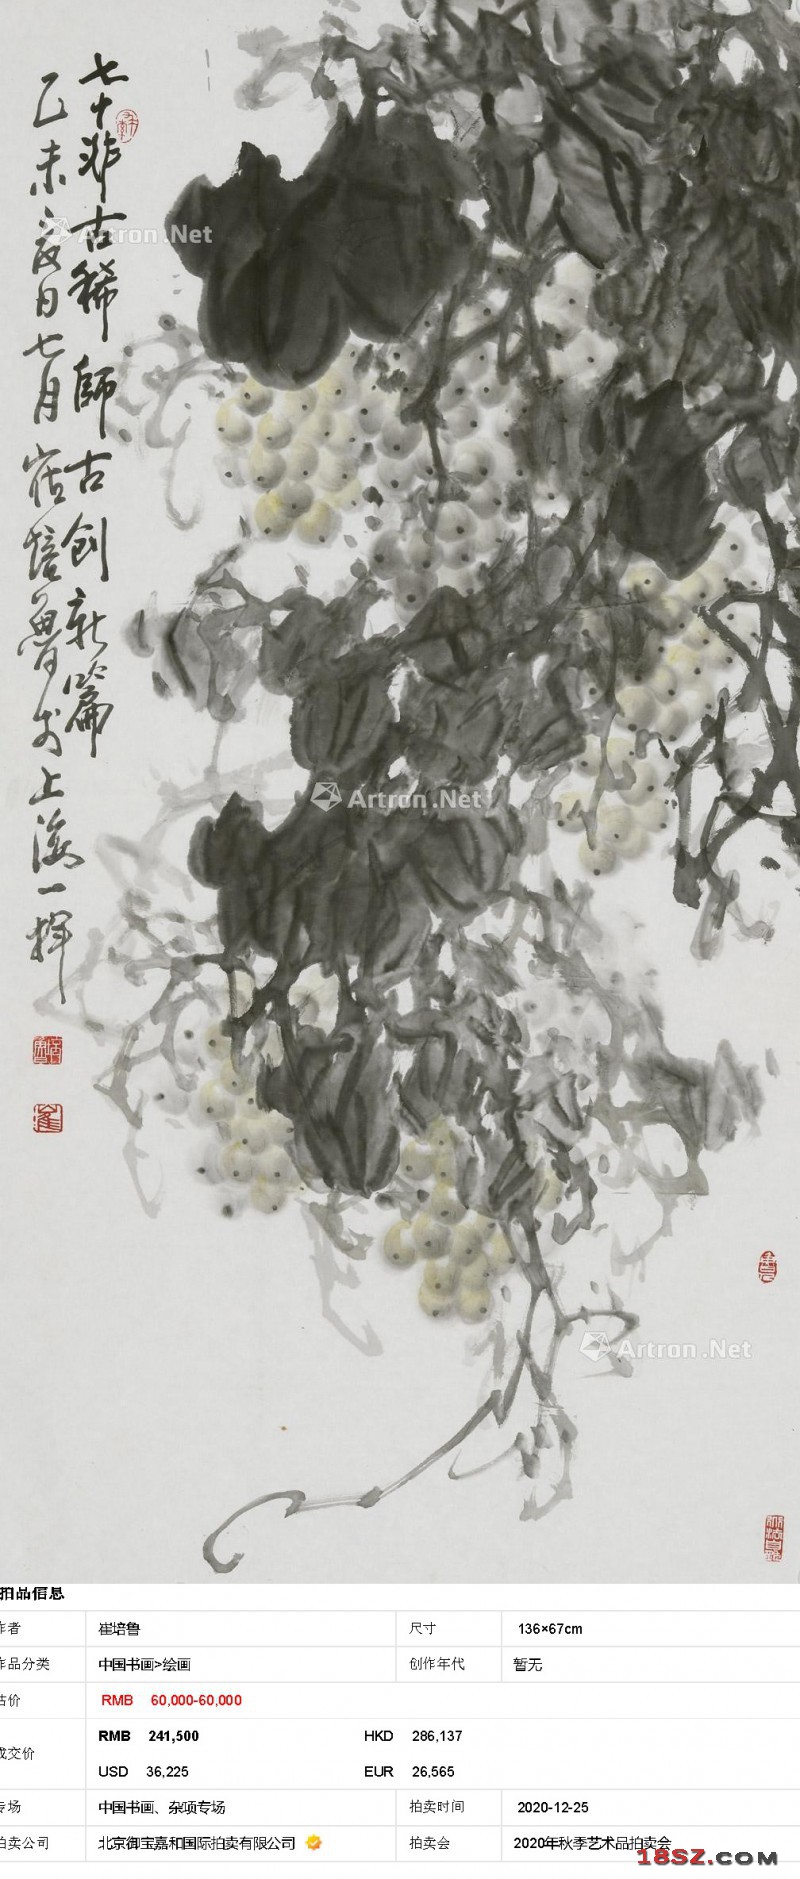 七十非古稀師古创新篇
乙未夏日七月崔培鲁于上海一挥
Artron.Net
Artron.Net
Artron.Net
拍品信息
作者 崔培鲁 尺寸 136×67cm
作品分类 中国书画>绘画 创作年代 暂无
估价 RMB 60,000-60,000
成交价 RMB 241,500 HKD 286,137
USD 36,225 EUR 26,565
专场 中国书画、杂项专场 拍卖时间 2020-12-25
拍卖公司 北京御宝嘉和国际拍卖有限公司 拍卖会 2020年秋季艺术品拍卖会
18SZ.COM